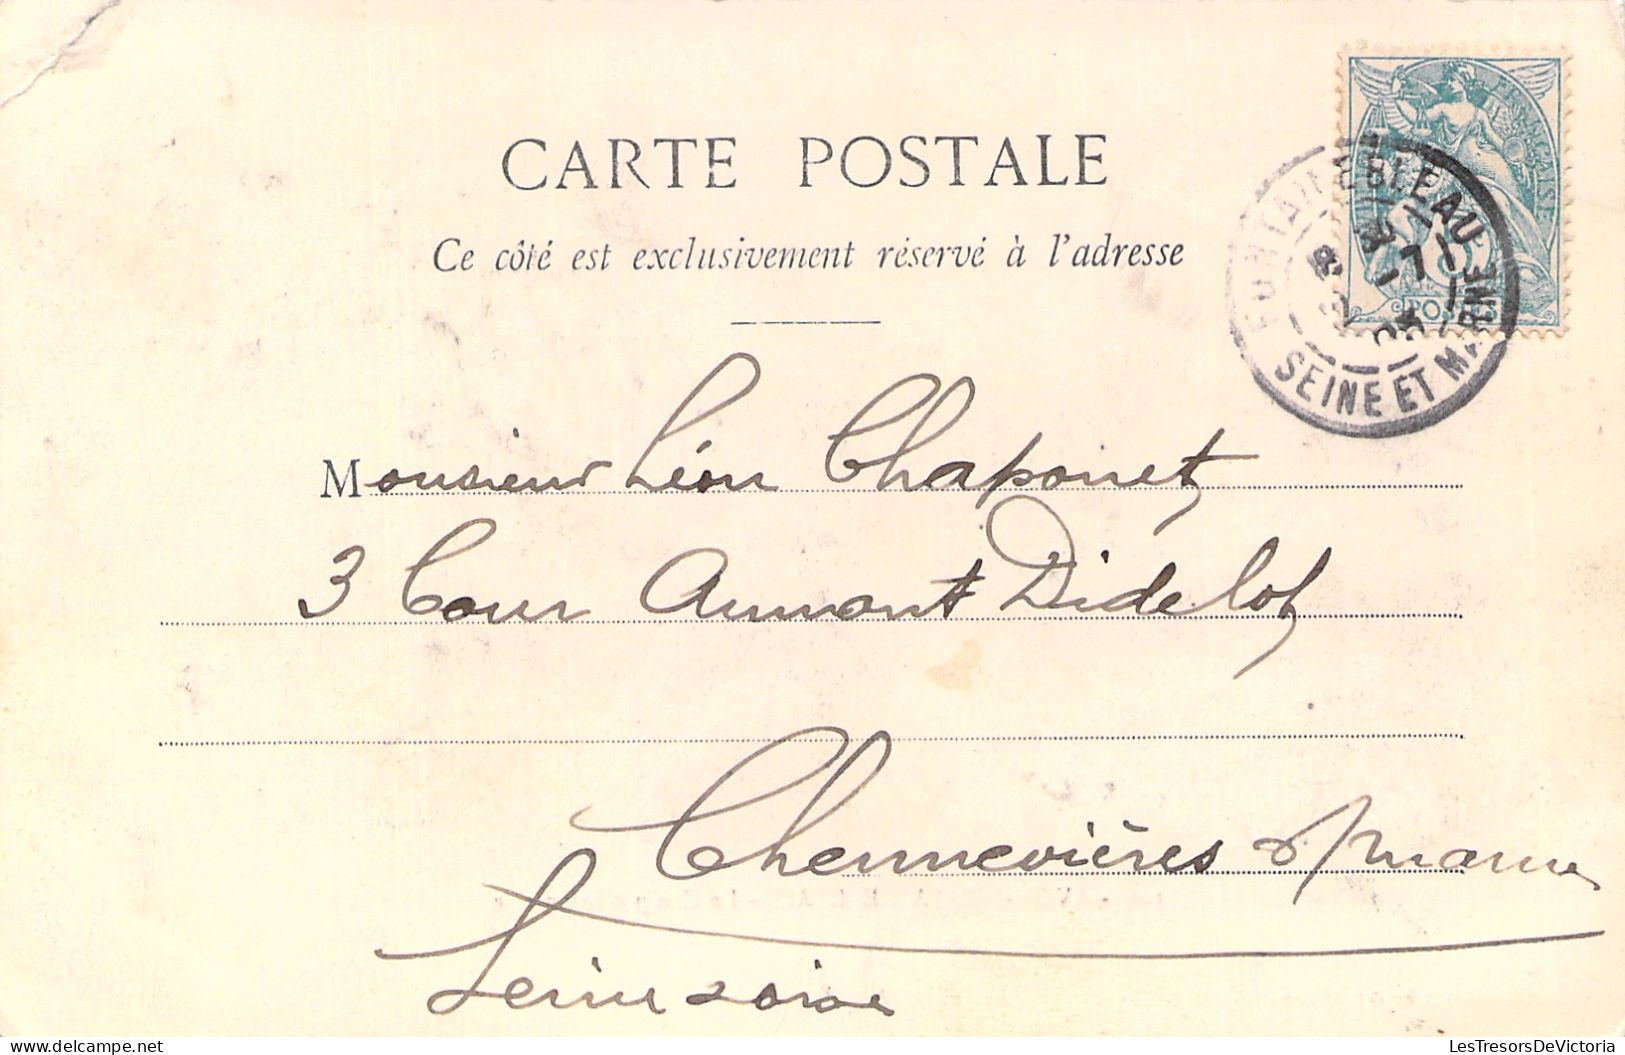 CARTE POSTALE
Ce côté est exclusivement réservé à l'adresse
FONTAINEBLEAU
SEINE ET MARNE
FRANÇAISE
POSTES
Monsieur Léon Chaponet
3 Cour Aumont Didelot
Chennevières s/marne
Seine & oise
LesTresorsDeVictoria